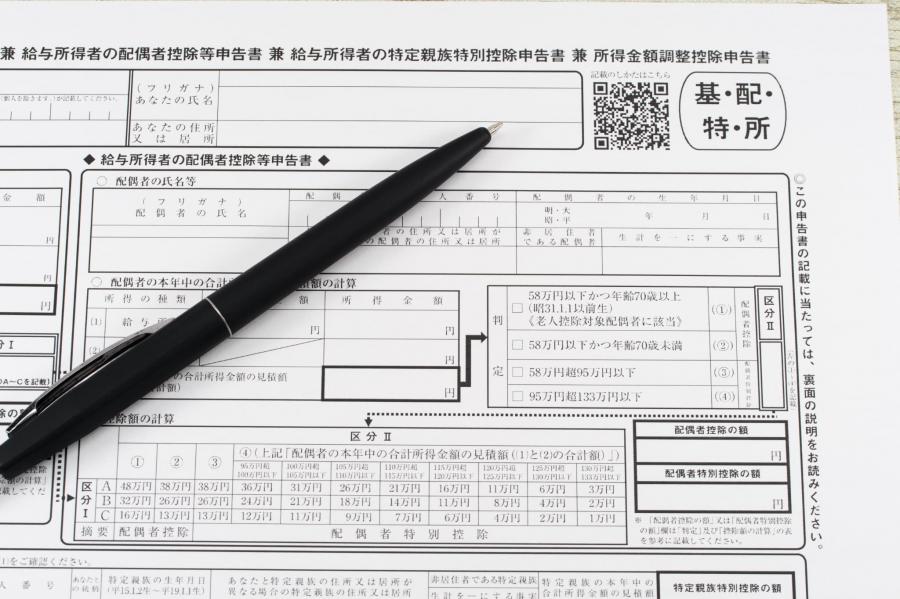 兼 給与所得者の配偶者控除等申告書 兼 給与所得者の特定親族特別控除申告書 兼 所得金額調整控除申告書
記載のしかたはこちら
(フリガナ)
あなたの氏名
あなたの住所
又は居所
基・配・
特・所
◆ 給与所得者の配偶者控除等申告書 ◆
○ 配偶者の氏名等
(フリガナ)
配偶者の氏名
配偶
人番号
配偶者の生年月日
明・大
昭・平
年 月 日
者の住所又は居所が
の配偶者の住所又は居所
非居住者
である配偶者
生計を一にする事実
◎この申告書の記載に当たっては、裏面の説明をお読みください。
金額
円
円
円
○ 配偶者の本年中の合計所
額の計算
所得の種類
所得金額
(1)
給与所
円
円
(2)
の合計所得金額の見積額
計額)
円
判定
□ 58万円以下かつ年齢70歳以上
(昭31.1.1以前生)
《老人控除対象配偶者に該当》
(①)
□ 58万円以下かつ年齢70歳未満
(②)
□ 58万円超95万円以下
(③)
□ 95万円超133万円以下
(④)
配偶者控除
配偶者特別控除
区分Ⅱ
分Ⅰ
A～Cを記載)
控除額の計算
区分Ⅱ
① ② ③ ④(上記「配偶者の本年中の合計所得金額の見積額((1)と(2)の合計額)」)
95万円超 100万円超 105万円超 110万円超 115万円超 120万円超 125万円超 130万円超
100万円以下 105万円以下 110万円以下 115万円以下 120万円以下 125万円以下 130万円以下 133万円以下
区分Ⅰ
A 48万円 38万円 38万円 36万円 31万円 26万円 21万円 16万円 11万円 6万円 3万円
B 32万円 26万円 26万円 24万円 21万円 18万円 14万円 11万円 8万円 4万円 2万円
C 16万円 13万円 13万円 12万円 11万円 9万円 7万円 6万円 4万円 2万円 1万円
摘要 配偶者控除 配偶者特別控除
配偶者控除の額
円
配偶者特別控除の額
円
※ 「配偶者控除の額」又は「配偶者特別控除
の額」欄は「判定」及び「控除額の計算」の表
を参考に記載してください。
)をご確認ください。
人番号
あなたと
の続柄
特定親族の生年月日
(平15.1.2生～平19.1.1生)
あなたと特定親族の住所又は居所が
異なる場合の特定親族の住所又は居所
非居住者である特定親族
生計を一にする事実
特定親族の本年中の
合計所得金額の見積額
特定親族特別控除の額